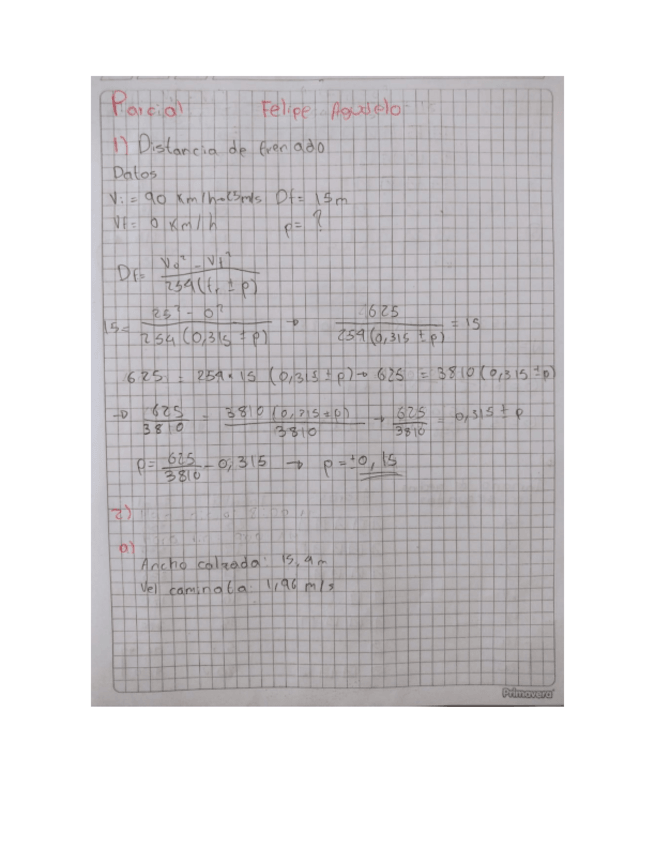 Parcial Felipe Agudelo
1) Distancia de frenado
Datos
Vi = 90 Km/h → 25m/s Df = 15m
Vf = 0 Km/h p = ?
Df = Vo² - Vf² / 254(fr ± p)
15 = 25² - 0² / 254(0,315 ± p) → 625 / 254(0,315 ± p) = 15
625 = 254 * 15 (0,315 ± p) → 625 = 3810(0,315 ± p)
→ 625 / 3810 = 3810(0,315 ± p) / 3810 → 625 / 3810 = 0,315 ± p
p = 625 / 3810 - 0,315 → p = ±0,15
2)
a)
Ancho calzada: 15,4m
Vel caminata: 1,96 m/s
Primavera